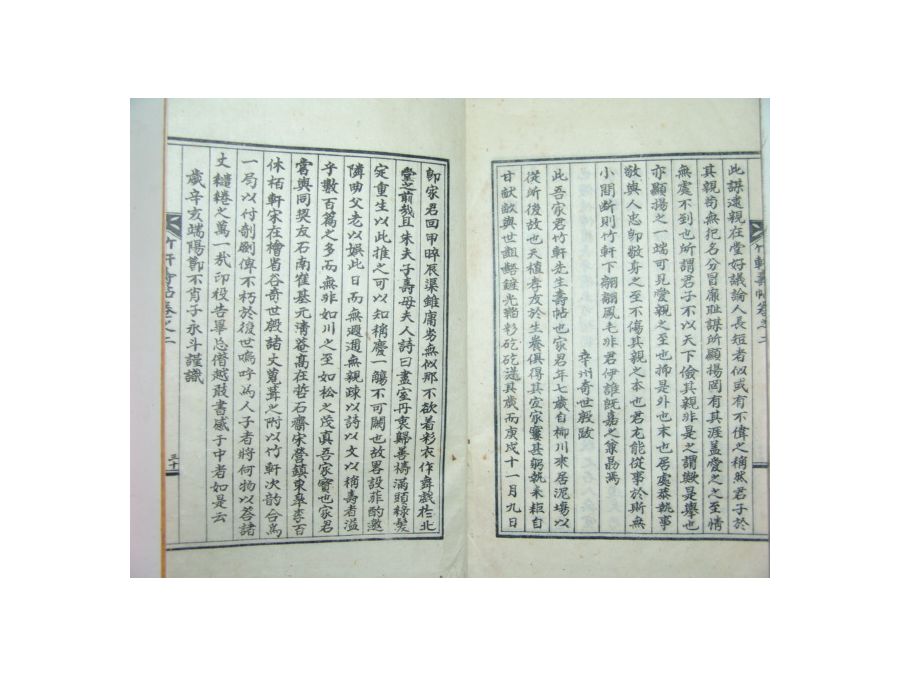 此謀遠親在堂好議論人長短者似或有不偉之稱然君子於
其親苟無犯名分冒廉恥謀所顯揚罔有其涯盖愛之之至情
無處不到也所謂君子不以天下儉其親非是之謂歟是擧也
亦顯揚之一端可見愛親之至也抑是外也末也居處恭執事
敬與人忠卽敬身之至不傷其親之本也君尤能從事於斯無
小間斷則竹軒下翩翩鳳毛非君伊誰旣嘉之兼勗焉
幸州奇世
此吾家君竹軒先生壽帖也家君年七歲自柳川來居泥場以
從所後故也天植孝友於生養俱得其宜家窶甚躬執耒耟自
甘畎畝與世齟齬鏟光鞱彩矻矻送其歲而庚戌十一月九日
竹軒壽帖卷之二
卽家君回甲晬辰渠雖庸劣無似那不欲着彩衣作舞戱於北
堂之前哉且朱夫子壽母夫人詩曰盡室丹衷歸善禱滿頭綠髮
定重生以此推之可以知稱慶一觴不可闕也故畧設菲酌邀
隣曲父老以娛此日而無遐邇無親疎以詩以文以稱壽者溢
乎數百篇之多而無非如川之至如松之茂眞吾家寶也家君
嘗與同契友石南崔基元淸菴高在哲石齋宋營鎮東皐李百
休栢軒宋在檜省谷奇世 諸丈蒐葺之附以竹軒次韵合爲
一局以付剞劂俾不朽於後世嗚呼爲人子者將何物以答諸
丈繾綣之萬一哉印役告畢忘僭越敢書感于中者如是云
歲辛亥端陽節不肖子永斗謹識
竹軒壽帖卷之二
三十